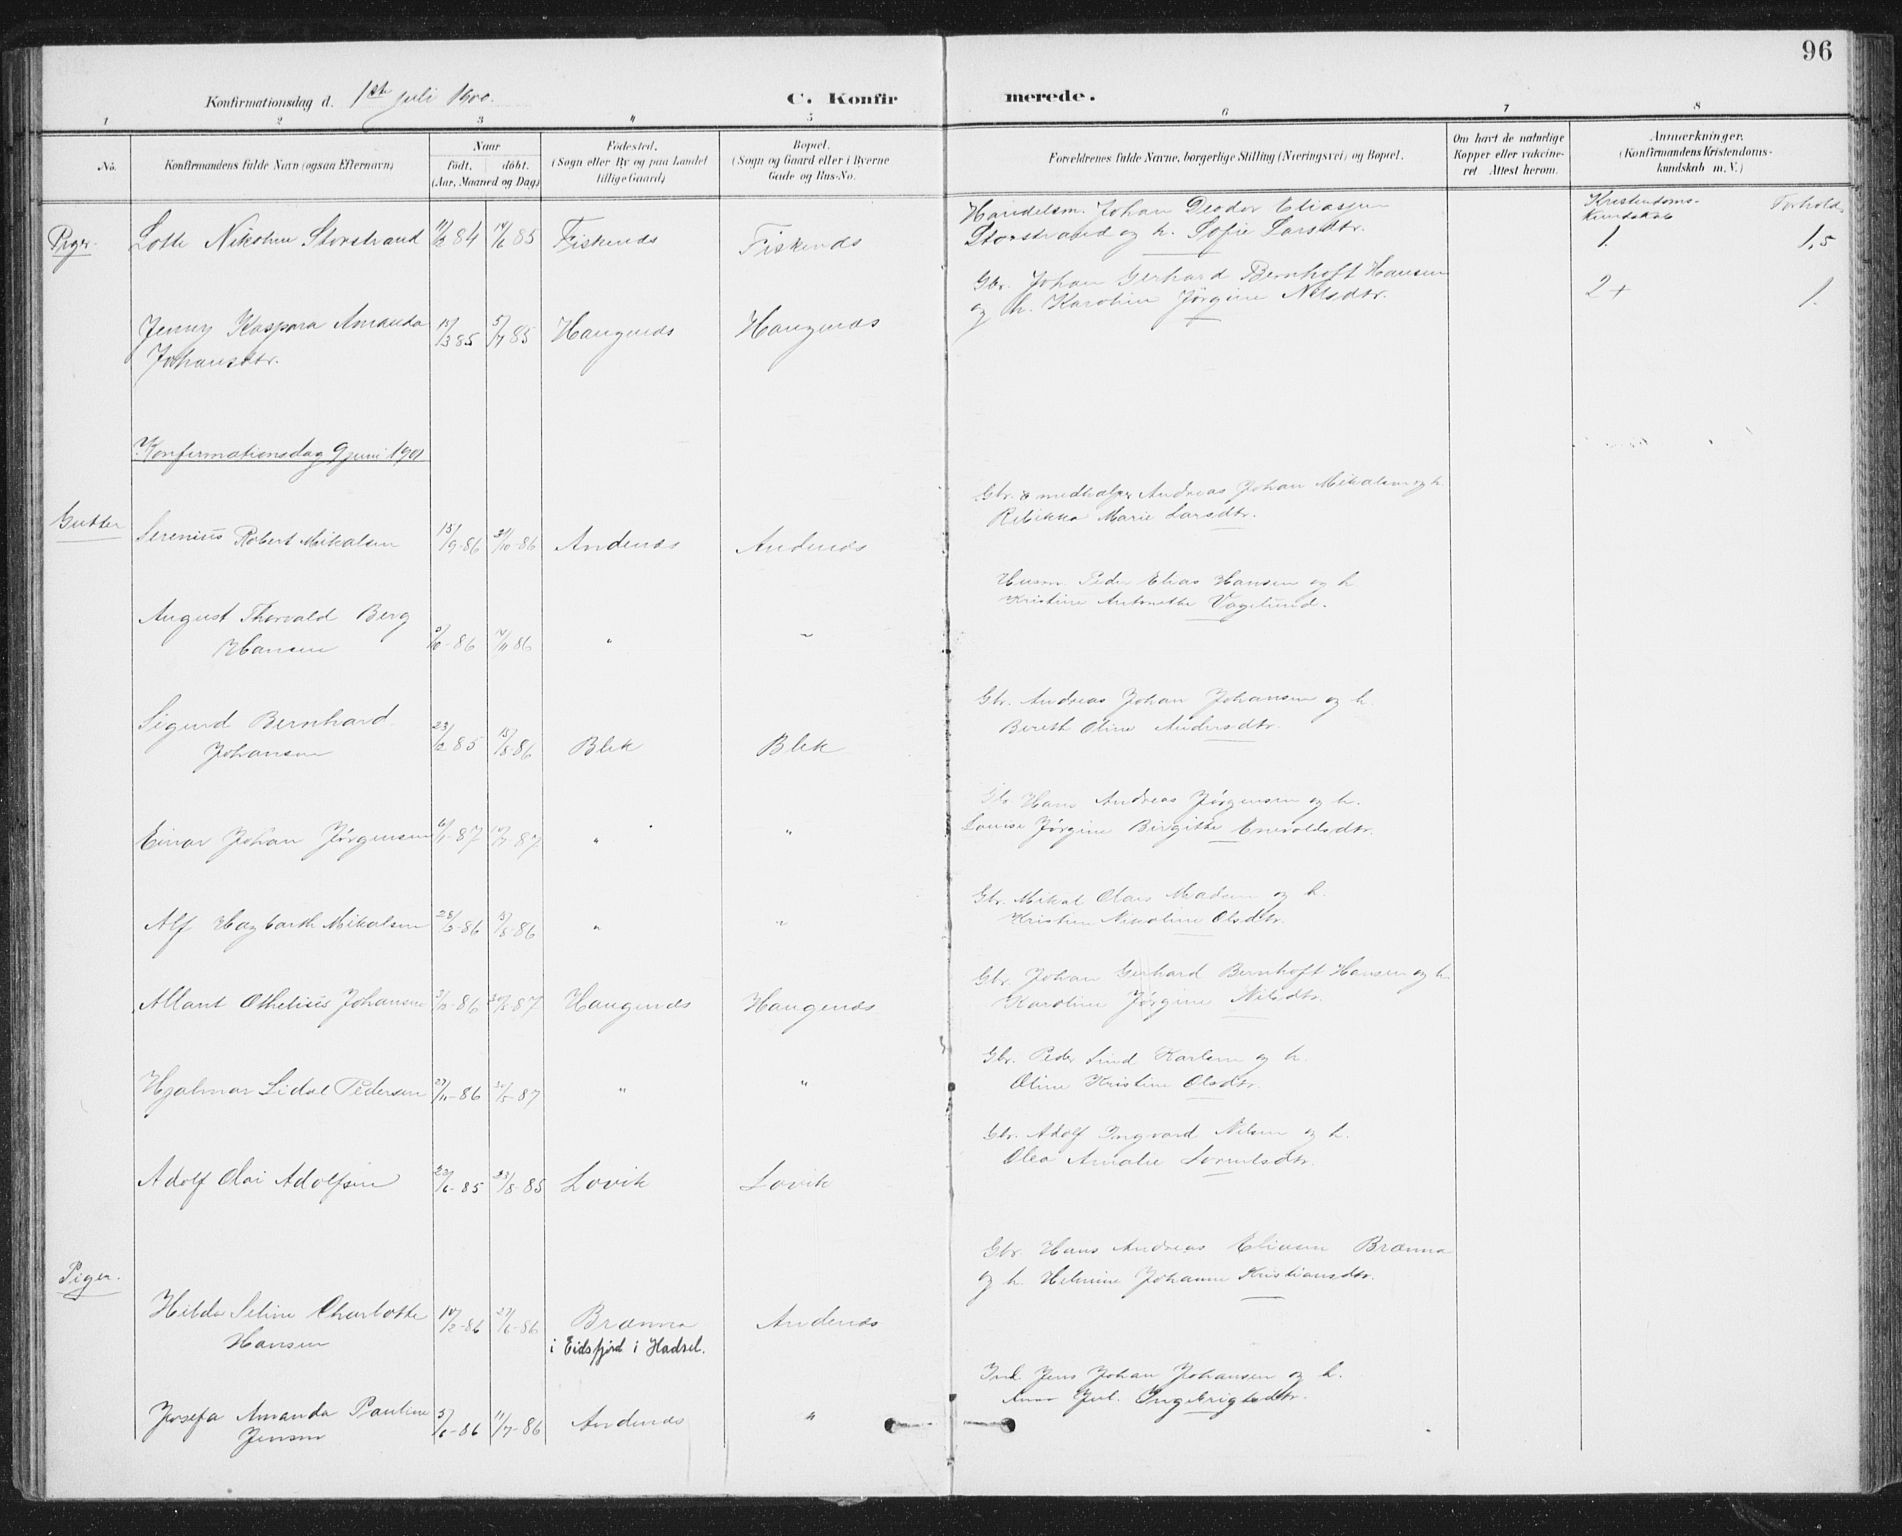 96
Konfirmationsdag d. 1st juli 1900.
C. Konfirmerede.
1 2 3 4 5 6 7 8
No.
Konfirmandens fulde Navn (ogsaa Efternavn)
Naar
født, døbt.
(Aar, Maaned og Dag)
Fødested.
(Sogn eller By og paa Landet
tillige Gaard)
Bopæl.
(Sogn og Gaard eller i Byerne
Gade og Hus-No.
Forældrenes fulde Navne, borgerlige Stilling (Næringsvei) og Bopæl.
Om havt de naturlige
Kopper eller vakcine-
ret Attest herom.
Anmærkninger.
(Konfirmandens Kristendoms-
kundskab m. V.)
Kristendoms-
kundskab Forhold.
Piger.
Lotte Nikoline Storstrand
84 85 Fiskenæs Fiskenæs
Handelsm. Johan Deodor Eliassen
Storstrand og h. Sofie Larsdtr.
1. 1,5
Jenny Kaspara Amanda
Johansdtr.
15/3 85 5/7 85 Haugnæs Haugnæs
Gbr. Johan Gerhard Bernhoft Hansen
og h. Karoline Jørgine Nilsdtr.
2+ 1.
Konfirmationsdag 9 juni 1901
Gutter
Serenius Robert Mikalsen
15/9-86 31/10-86 Andenæs Andenæs
Gbr. & medhælper Andreas Johan Mikalsen og h.
Rebikka Marie Larsdtr.
August Thorvald Berg
Hansen
86 86 " "
Husm. Peder Elias Hansen og h
Kristine Antonette Vogelund.
Sigurd Bernhard
Johansen
23/12 85 15/8-86 Blek Blek
Gbr. Andreas Johan Johansen og h.
Bereth Oline Andersdtr.
Einar Johan Jørgensen
87 87 " "
Gbr. Hans Andreas Jørgensen og h.
Louise Jørgine Birgitte Enevoldsdtr.
Alf Hagbarth Mikalsen
86 86 " "
Gbr. Mikal Olais Madsen og h.
Kristine Nikoline Olsdtr.
Allant Othelius Johansen
86 87 Haugenæs Haugenæs
Gbr. Johan Gerhard Bernhoft Hansen og h
Karoline Jørgine Nilsdtr.
Hjalmar Lidal Pedersen
27/11-86 87 " "
Gbr. Peder Lind Karlsen og h.
Oline Kristine Olsdtr.
Adolf Olai Adolfsen
85 23/8-85 Lovik Lovik
Gbr. Adolf Ingvard Nilsen og h.
Olea Amalie Lorentsdtr.
Piger.
Hilda Seline Charlotte
Hansen
86 86 Brænna
i Eidsfjord i Hadsel.
Andenæs
Gbr. Hans Andreas Eliasen Brænna
og h. Helmine Johanne Kristiansdtr.
Josefa Amanda Pauline
Jensen
5/6-86 11/7-86 Andenæs "
Ink. Jens Johan Johansen og h.
Anna Jul. Ingebrigtsdtr.